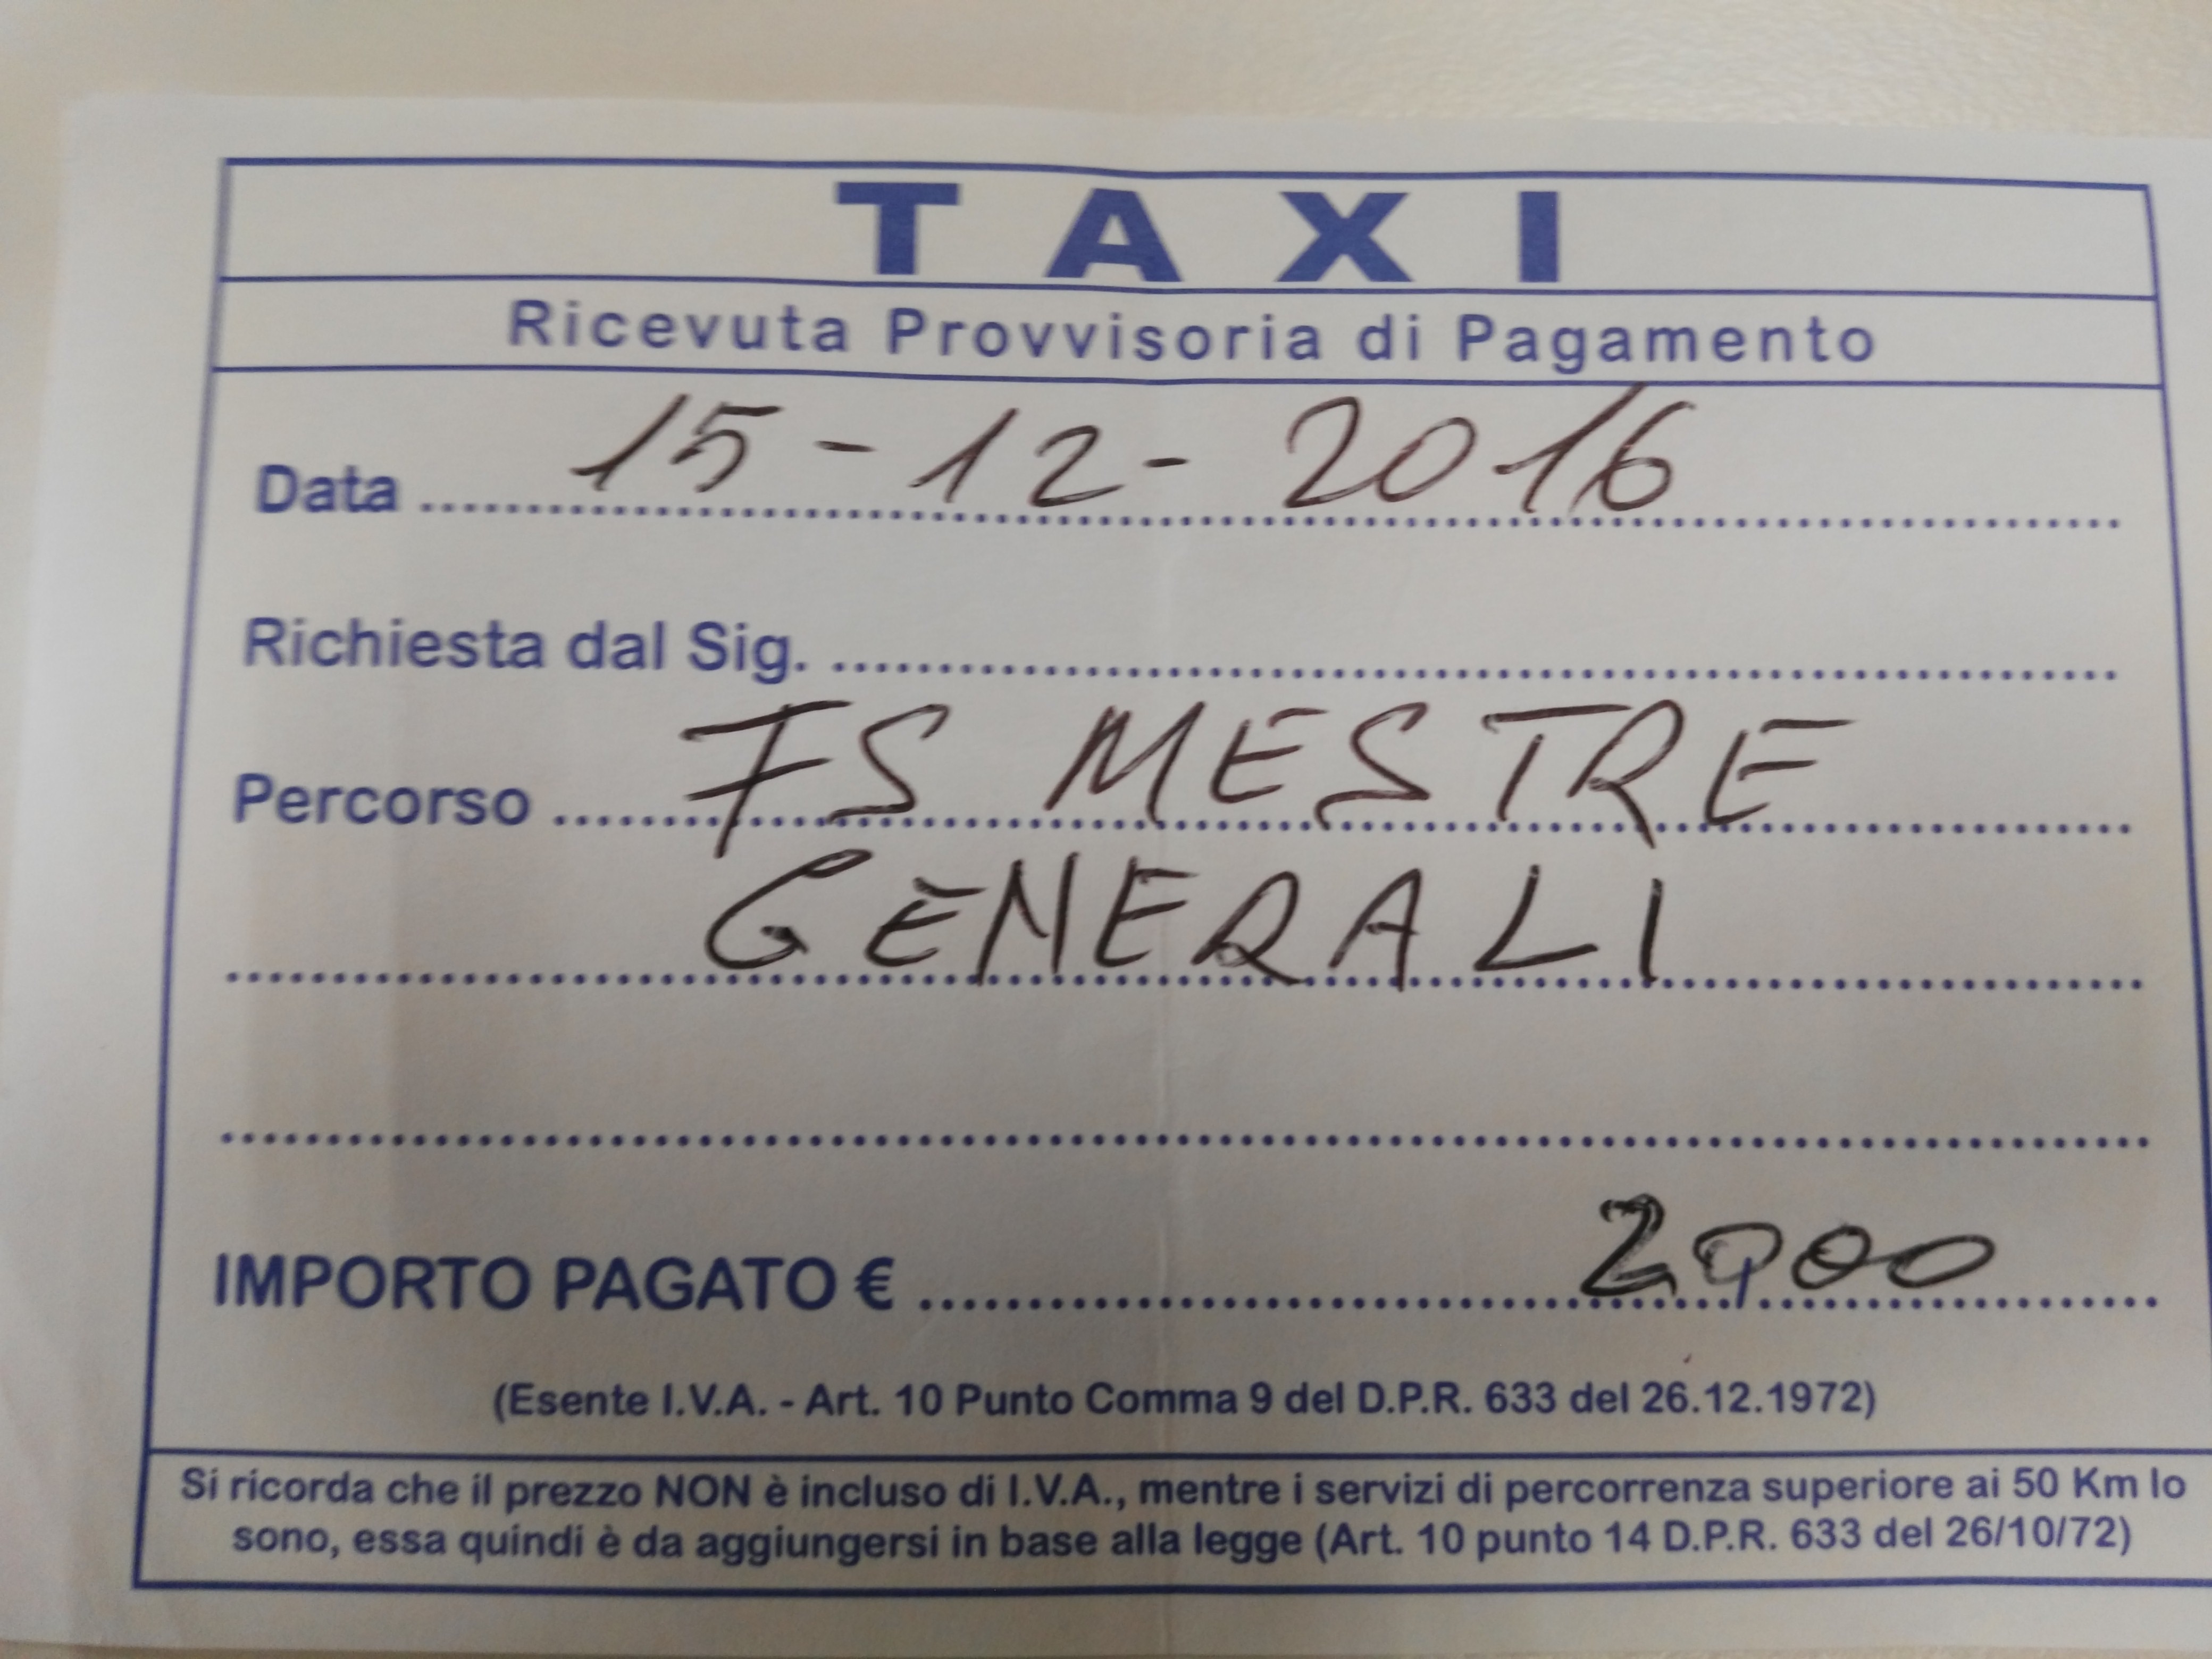 TAXI
Ricevuta Provvisoria di Pagamento
Data ........ 15-12-2016 ........
Richiesta dal Sig. ........
Percorso ........ FS MESTRE ........
GENERALI
IMPORTO PAGATO € ........ 20,00 ........
(Esente I.V.A. - Art. 10 Punto Comma 9 del D.P.R. 633 del 26.12.1972)
Si ricorda che il prezzo NON è incluso di I.V.A., mentre i servizi di percorrenza superiore ai 50 Km lo
sono, essa quindi è da aggiungersi in base alla legge (Art. 10 punto 14 D.P.R. 633 del 26/10/72)